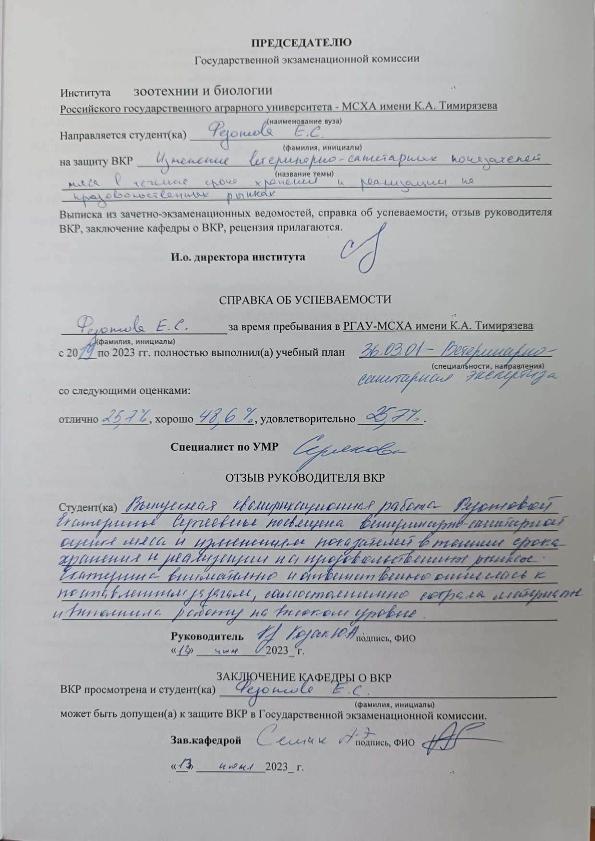 ПРЕДСЕДАТЕЛЮ
Государственной экзаменационной комиссии
Института зоотехнии и биологии
Российского государственного аграрного университета - МСХА имени К.А. Тимирязева
(наименование вуза)
Направляется студент(ка) Федотова Е.С.
(фамилия, инициалы)
на защиту ВКР Изменение ветеринарно-санитарных показателей
(название темы)
мяса в течение срока хранения и реализации на
продовольственных рынках
Выписка из зачетно-экзаменационных ведомостей, справка об успеваемости, отзыв руководителя
ВКР, заключение кафедры о ВКР, рецензия прилагаются.
И.о. директора института
СПРАВКА ОБ УСПЕВАЕМОСТИ
Федотова Е.С. за время пребывания в РГАУ-МСХА имени К.А. Тимирязева
(фамилия, инициалы)
с 2019 по 2023 гг. полностью выполнил(а) учебный план 36.03.01 – Ветеринарно-
(специальности, направления)
санитарная экспертиза
со следующими оценками:
отлично 25,7%, хорошо 48,6%, удовлетворительно 25,7%.
Специалист по УМР
ОТЗЫВ РУКОВОДИТЕЛЯ ВКР
Студент(ка) Выпускная квалификационная работа Федотовой
Екатерины Сергеевны посвящена ветеринарно-санитарной
оценке мяса и изменениям показателей в течение срока
хранения и реализации на продовольственных рынках.
Екатерина внимательно и ответственно относилась к
поставленным задачам, самостоятельно собрала материал
и выполнила работу на высоком уровне.
Руководитель Козак Ю.А. подпись, ФИО
«13» июня 2023_ г.
ЗАКЛЮЧЕНИЕ КАФЕДРЫ О ВКР
ВКР просмотрена и студент(ка) Федотова Е.С.
(фамилия, инициалы)
может быть допущен(а) к защите ВКР в Государственной экзаменационной комиссии.
Зав.кафедрой подпись, ФИО
«13» июня 2023_ г.